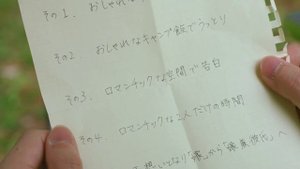 その1. おしゃれな
その2. おしゃれなキャンプ飯でうっとり
その3. ロマンチックな空間で告白
その4. ロマンチックな2人だけの時間
想いとなり「 」から「 彼氏」へ